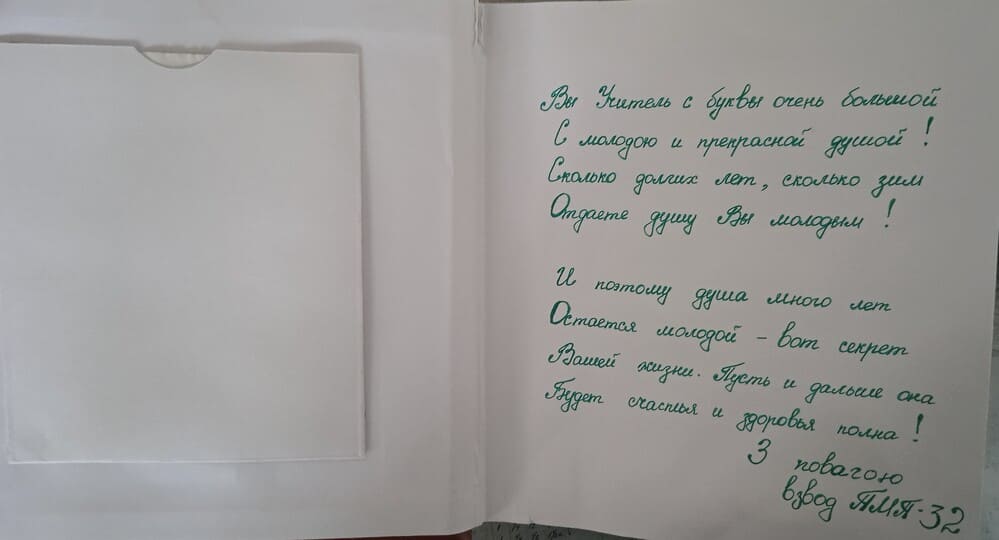 Вы Учитель с буквы очень большой
С молодою и прекрасной душой !
Сколько долгих лет, сколько зим
Отдаете душу Вы молодым !
И поэтому душа много лет
Остается молодой - вот секрет
Вашей жизни. Пусть и дальше она
Будет счастья и здоровья полна !
З повагою
взвод ПМП-32